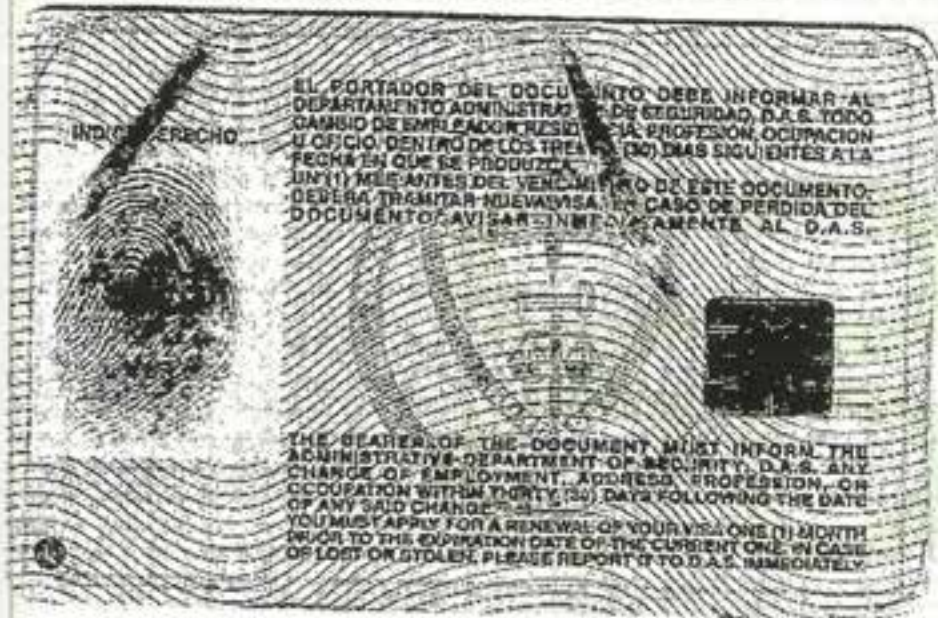 INDICE DERECHO
EL PORTADOR DEL DOCUMENTO DEBE INFORMAR AL
DEPARTAMENTO ADMINISTRATIVO DE SEGURIDAD, D.A.S. TODO
CAMBIO DE EMPLEADOR, RESIDENCIA, PROFESION, OCUPACION
U OFICIO, DENTRO DE LOS TREINTA (30) DIAS SIGUIENTES A LA
FECHA EN QUE SE PRODUZCA.
UN (1) MES ANTES DEL VENCIMIENTO DE ESTE DOCUMENTO
DEBERA TRAMITAR NUEVA VISA. EN CASO DE PERDIDA DEL
DOCUMENTO, AVISAR INMEDIATAMENTE AL D.A.S.
THE BEARER OF THE DOCUMENT MUST INFORM THE
ADMINISTRATIVE DEPARTMENT OF SECURITY, D.A.S. ANY
CHANGE OF EMPLOYMENT, ADDRESS, PROFESSION, OR
OCCUPATION WITHIN THIRTY (30) DAYS FOLLOWING THE DATE
OF ANY SAID CHANGE.
YOU MUST APPLY FOR A RENEWAL OF YOUR VISA ONE (1) MONTH
PRIOR TO THE EXPIRATION DATE OF THE CURRENT ONE. IN CASE
OF LOST OR STOLEN, PLEASE REPORT IT TO D.A.S. IMMEDIATELY.